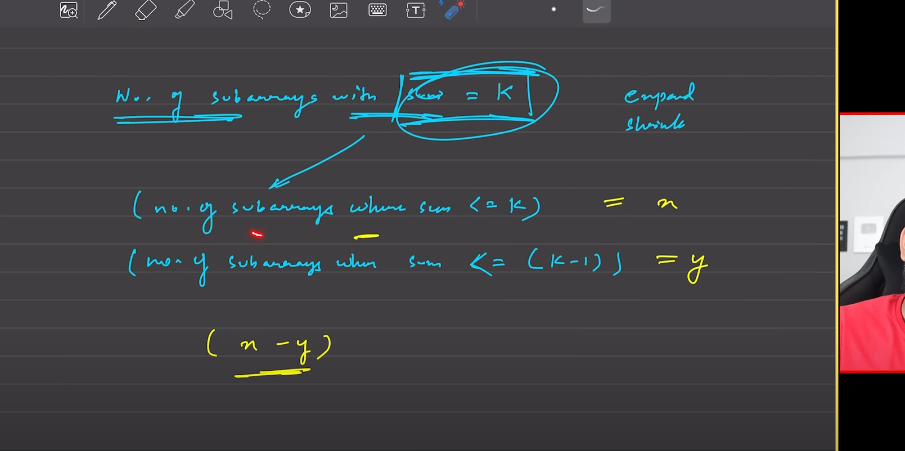 No. of subarrays with sum = K
expand
shrink
(no. of subarrays where sum <= K) = x
(no. of subarrays where sum <= (K-1)) = y
(x - y)